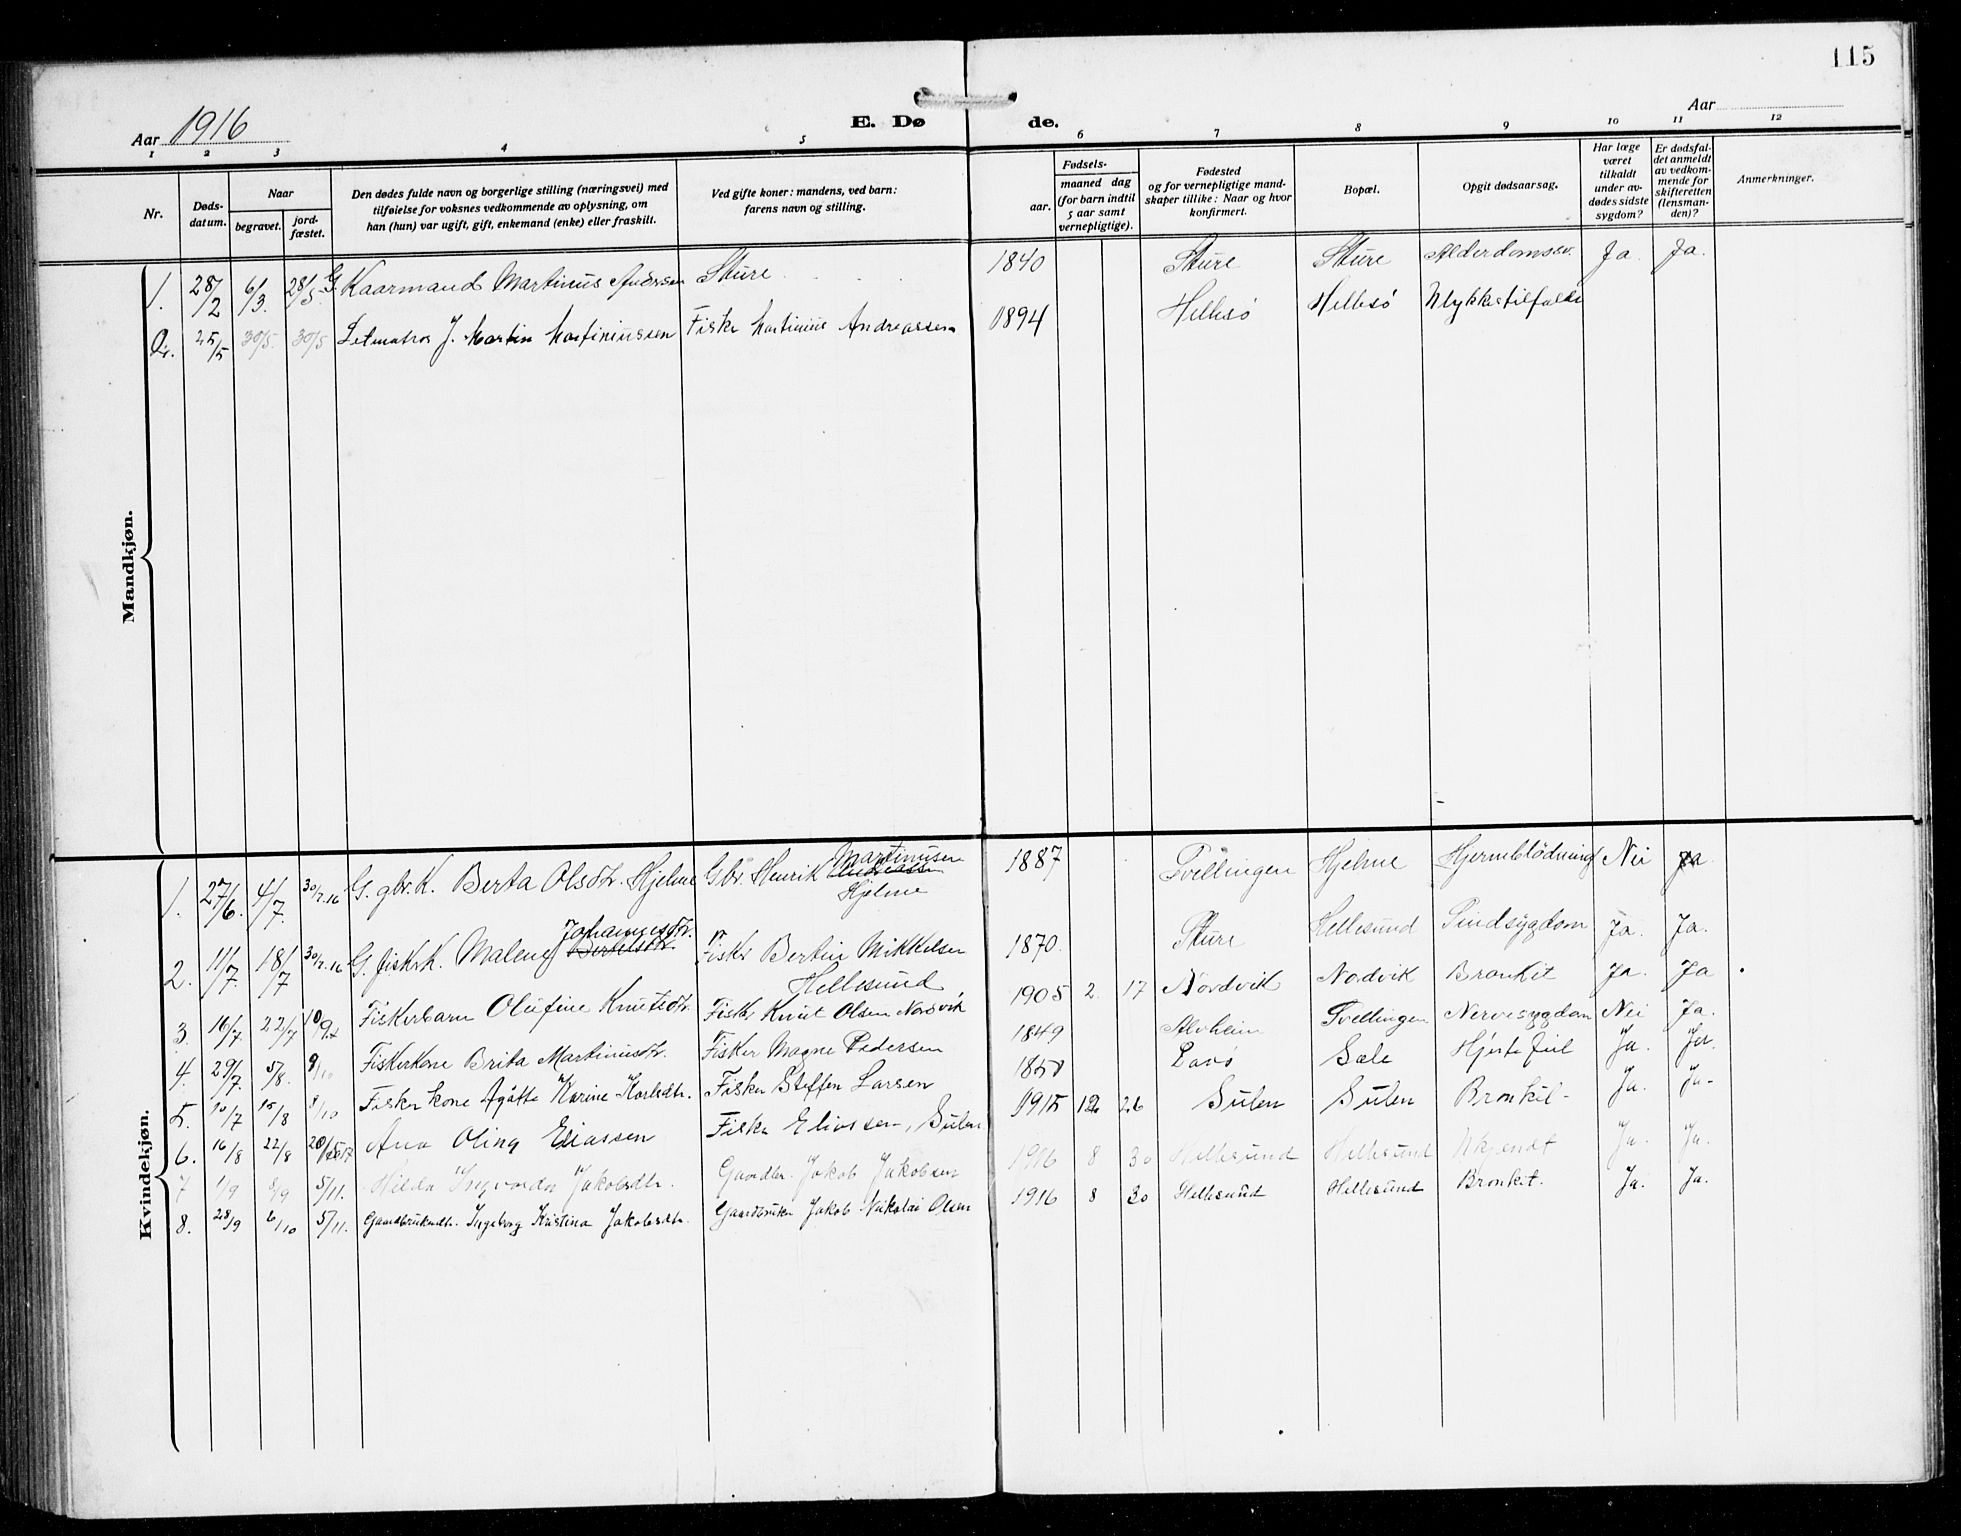 115
Aar 1916
E. Døde.
Aar
1 2 3 4 5 6 7 8 9 10 11 12
Nr.
Døds-datum.
Naar
begravet.
jord-fæstet.
Den dødes fulde navn og borgerlige stilling (næringsvei) med tilføielse for voksnes vedkommende av oplysning, om han (hun) var ugift, gift, enkemand (enke) eller fraskilt.
Ved gifte koner: mandens, ved barn: farens navn og stilling.
Fødsels-
aar.
maaned dag (for barn indtil 5 aar samt vernepligtige).
Fødested og for vernepligtige mandskaper tillike: Naar og hvor konfirmert.
Bopæl.
Opgit dødsaarsag.
Har læge været tilkaldt under avdødes sidste sygdom?
Er dødsfaldet anmeldt av vedkommende for skifteretten (lensmanden)?
Anmerkninger.
Mandkjøn.
1. 28/2 6/3 28/5 G. Kaarmand Martinus Andersen Sture 1840 Sture Sture Alderdomssv. Ja. Ja.
2. 25/5 30/5. 30/5 J. Martin Martiniussen Fisker Martinus Andreassen 1894 Hellesø Hellesø Ulykkestilfælde
Kvindekjøn.
1. 27/6. 4/7. 30/7.16 G. gbr.K. Berta Olsdtr. Hjelme Gbr. Henrik Martinusen Hjelme 1887 Tvellingen Hjelme Hjerneblödning Nei Ja
2. 11/7. 18/7 30/7.16 G. fiskerk. Malene Johannesdtr. Bertelsdtr. Fisker Bertin Mikkelsen Hellesund 1870. Sture Hellesund Sindsygdom Ja. Ja.
3. 16/7 22/7 10/9 Fiskerbarn Olufine Knutsdtr. Fisker Knut Olsen Nordvik 1905 2. 17 Nordvik Nodvik Bronkit Ja. Ja
4. 29/7. 5/8. 8/10 Fiskerkone Brita Martinusdtr. Fisker Magne Pedersen 1849 Alvheim Tvellingen Nervesygdom Nei Ja.
5. 10/7 15/8 8/10 Fisker kone Agåtte Karine Karlsdtr. Fisker Steffen Larsen Sæle Hjertefeil Ja. Ja.
6. 16/8 22/8 Ana Olina Eliassen Fisker Eliassen, Sulen 1915 12 26 Sulen Sulen Bronkit - Ja. Ja-
7 1/9 8/9 5/11. Hilda Ingvarda Jakobsdtr. Gaardbr. Jakob Jakobsen 1916 8 30 Hellesund Hellesund Ukjendt Ja. Ja.
8. 28/9 6/10 5/11. Gaardbrukerdtr. Ingeborg Kristina Jakobsdtr. Gaardbruker Jakob Nikolai Olsen 1916 8 30 Hellesund Hellesund Bronkit. Ja. Ja.